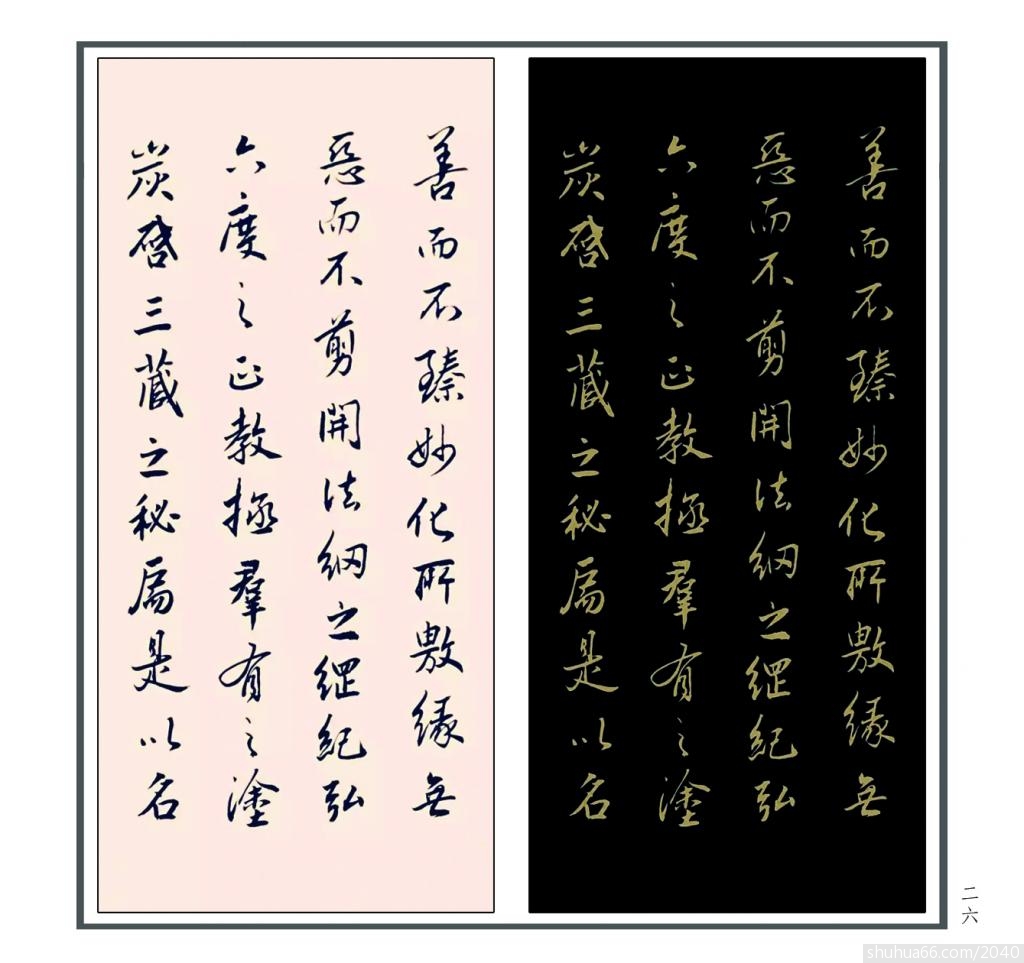 善而不臻妙化所敷緣無
惡而不剪開法網之綱紀弘
六度之正教拯羣有之塗
炭啓三藏之秘扃是以名
善而不臻妙化所敷緣無
惡而不剪開法網之綱紀弘
六度之正教拯羣有之塗
炭啓三藏之秘扃是以名
二六
shuhua66.com/2040